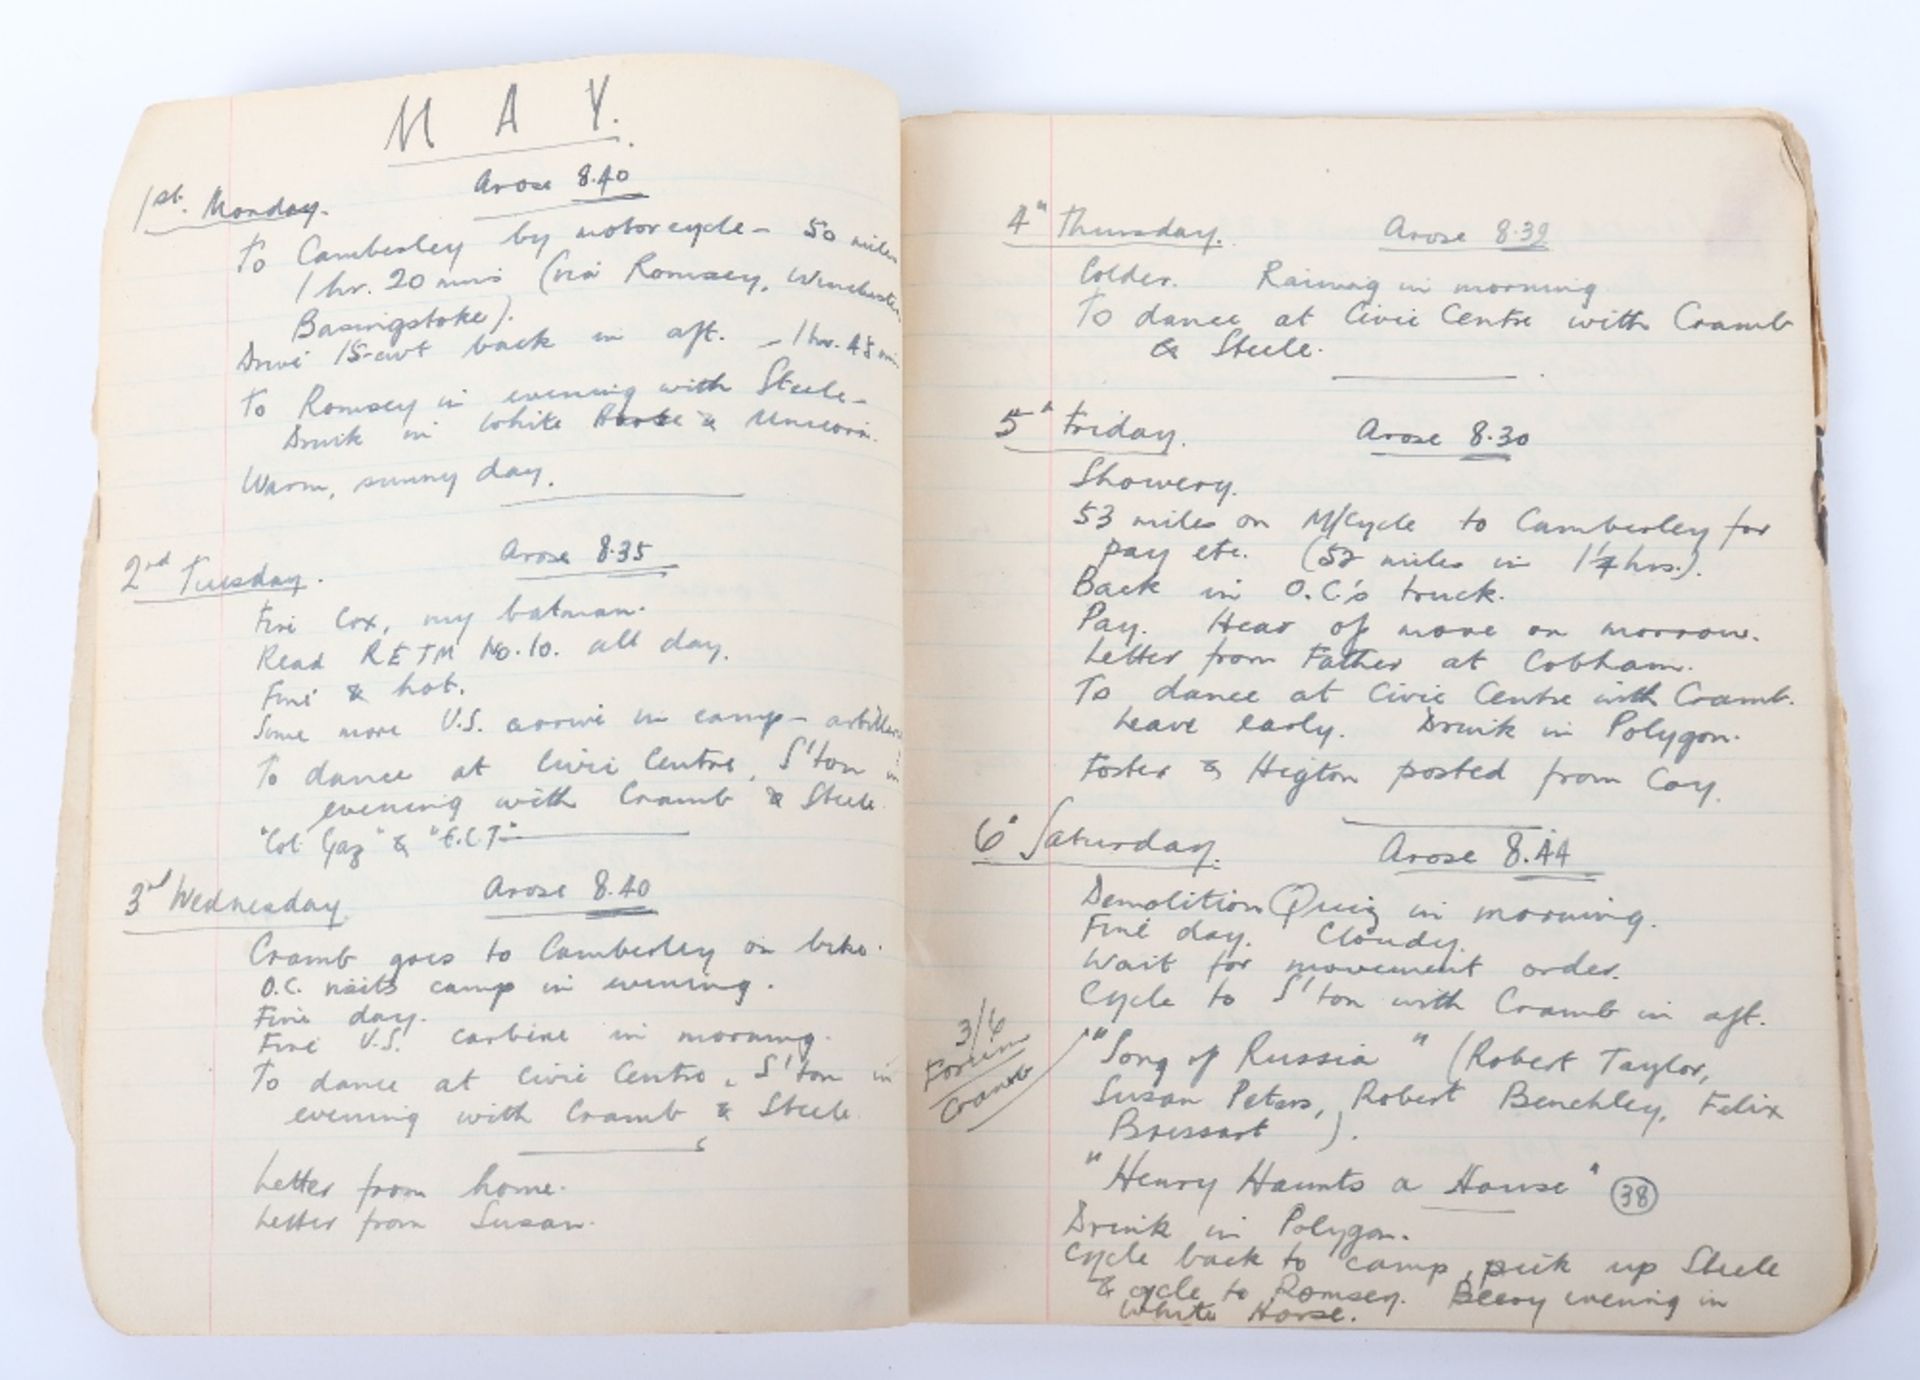 MAY.
1st. Monday. Arose 8.40
To Camberley by motorcycle - 50 miles
1 hr. 20 mins (via Romsey, Winchester,
Basingstoke).
Drive 15-cwt back in aft. - 1 hr. 45 min
To Romsey in evening with Steele -
Drink in White Horse & Unicorn.
Warm, sunny day.
2nd Tuesday. Arose 8.35
Fire Cox, my batman.
Read RETM No. 10. all day.
Fine & hot.
Some more U.S. arrive in camp - artillery
To dance at Civic Centre, S'ton in
evening with Cramb & Steele
"Col Gaz" & "E.C.T"
3rd Wednesday Arose 8.40
Cramb goes to Camberley on bike.
O.C. visits camp in evening.
Fine day.
Fire U.S. carbine in morning.
To dance at Civic Centre, S'ton in
evening with Cramb & Steele
Letter from home.
Letter from Susan.
4" Thursday. Arose 8.39
Colder. Raining in morning
To dance at Civic Centre with Cramb
& Steele.
5" Friday. Arose 8.30
Showery.
53 miles on M/Cycle to Camberley for
pay etc. (52 miles in 1¼ hrs.).
Back in O.C.'s truck.
Pay. Hear of move on morrow.
Letter from Father at Cobham.
To dance at Civic Centre with Cramb.
Leave early. Drink in Polygon.
Foster & Higton posted from Coy.
6" Saturday. Arose 8.44
Demolition Quiz in morning.
Fine day. Cloudy.
Wait for movement order.
Cycle to S'ton with Cramb in aft.
3/6
Forum
Cramb
"Song of Russia" (Robert Taylor,
Susan Peters, Robert Benchley, Felix
Bressart).
"Henry Haunts a House" 38
Drink in Polygon.
Cycle back to camp, pick up Steele
& cycle to Romsey. Beery evening in
White Horse.